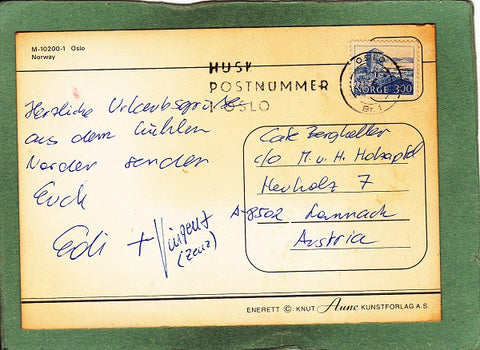 M-10200-1 Oslo
Norway
HUSK
POSTNUMMER
I OSLO
OSLO
NORGE 300
Herzliche Urlaubsgrüße
aus dem kühlen
Norden senden
Euch
Edi + Vinzent
(Zenz)
Café Bergkeller
c/o M. u. H. Holzapfel
Heuholz 7
A-8502 Lannach
Austria
ENERETT © KNUT Aune KUNSTFORLAG A.S.